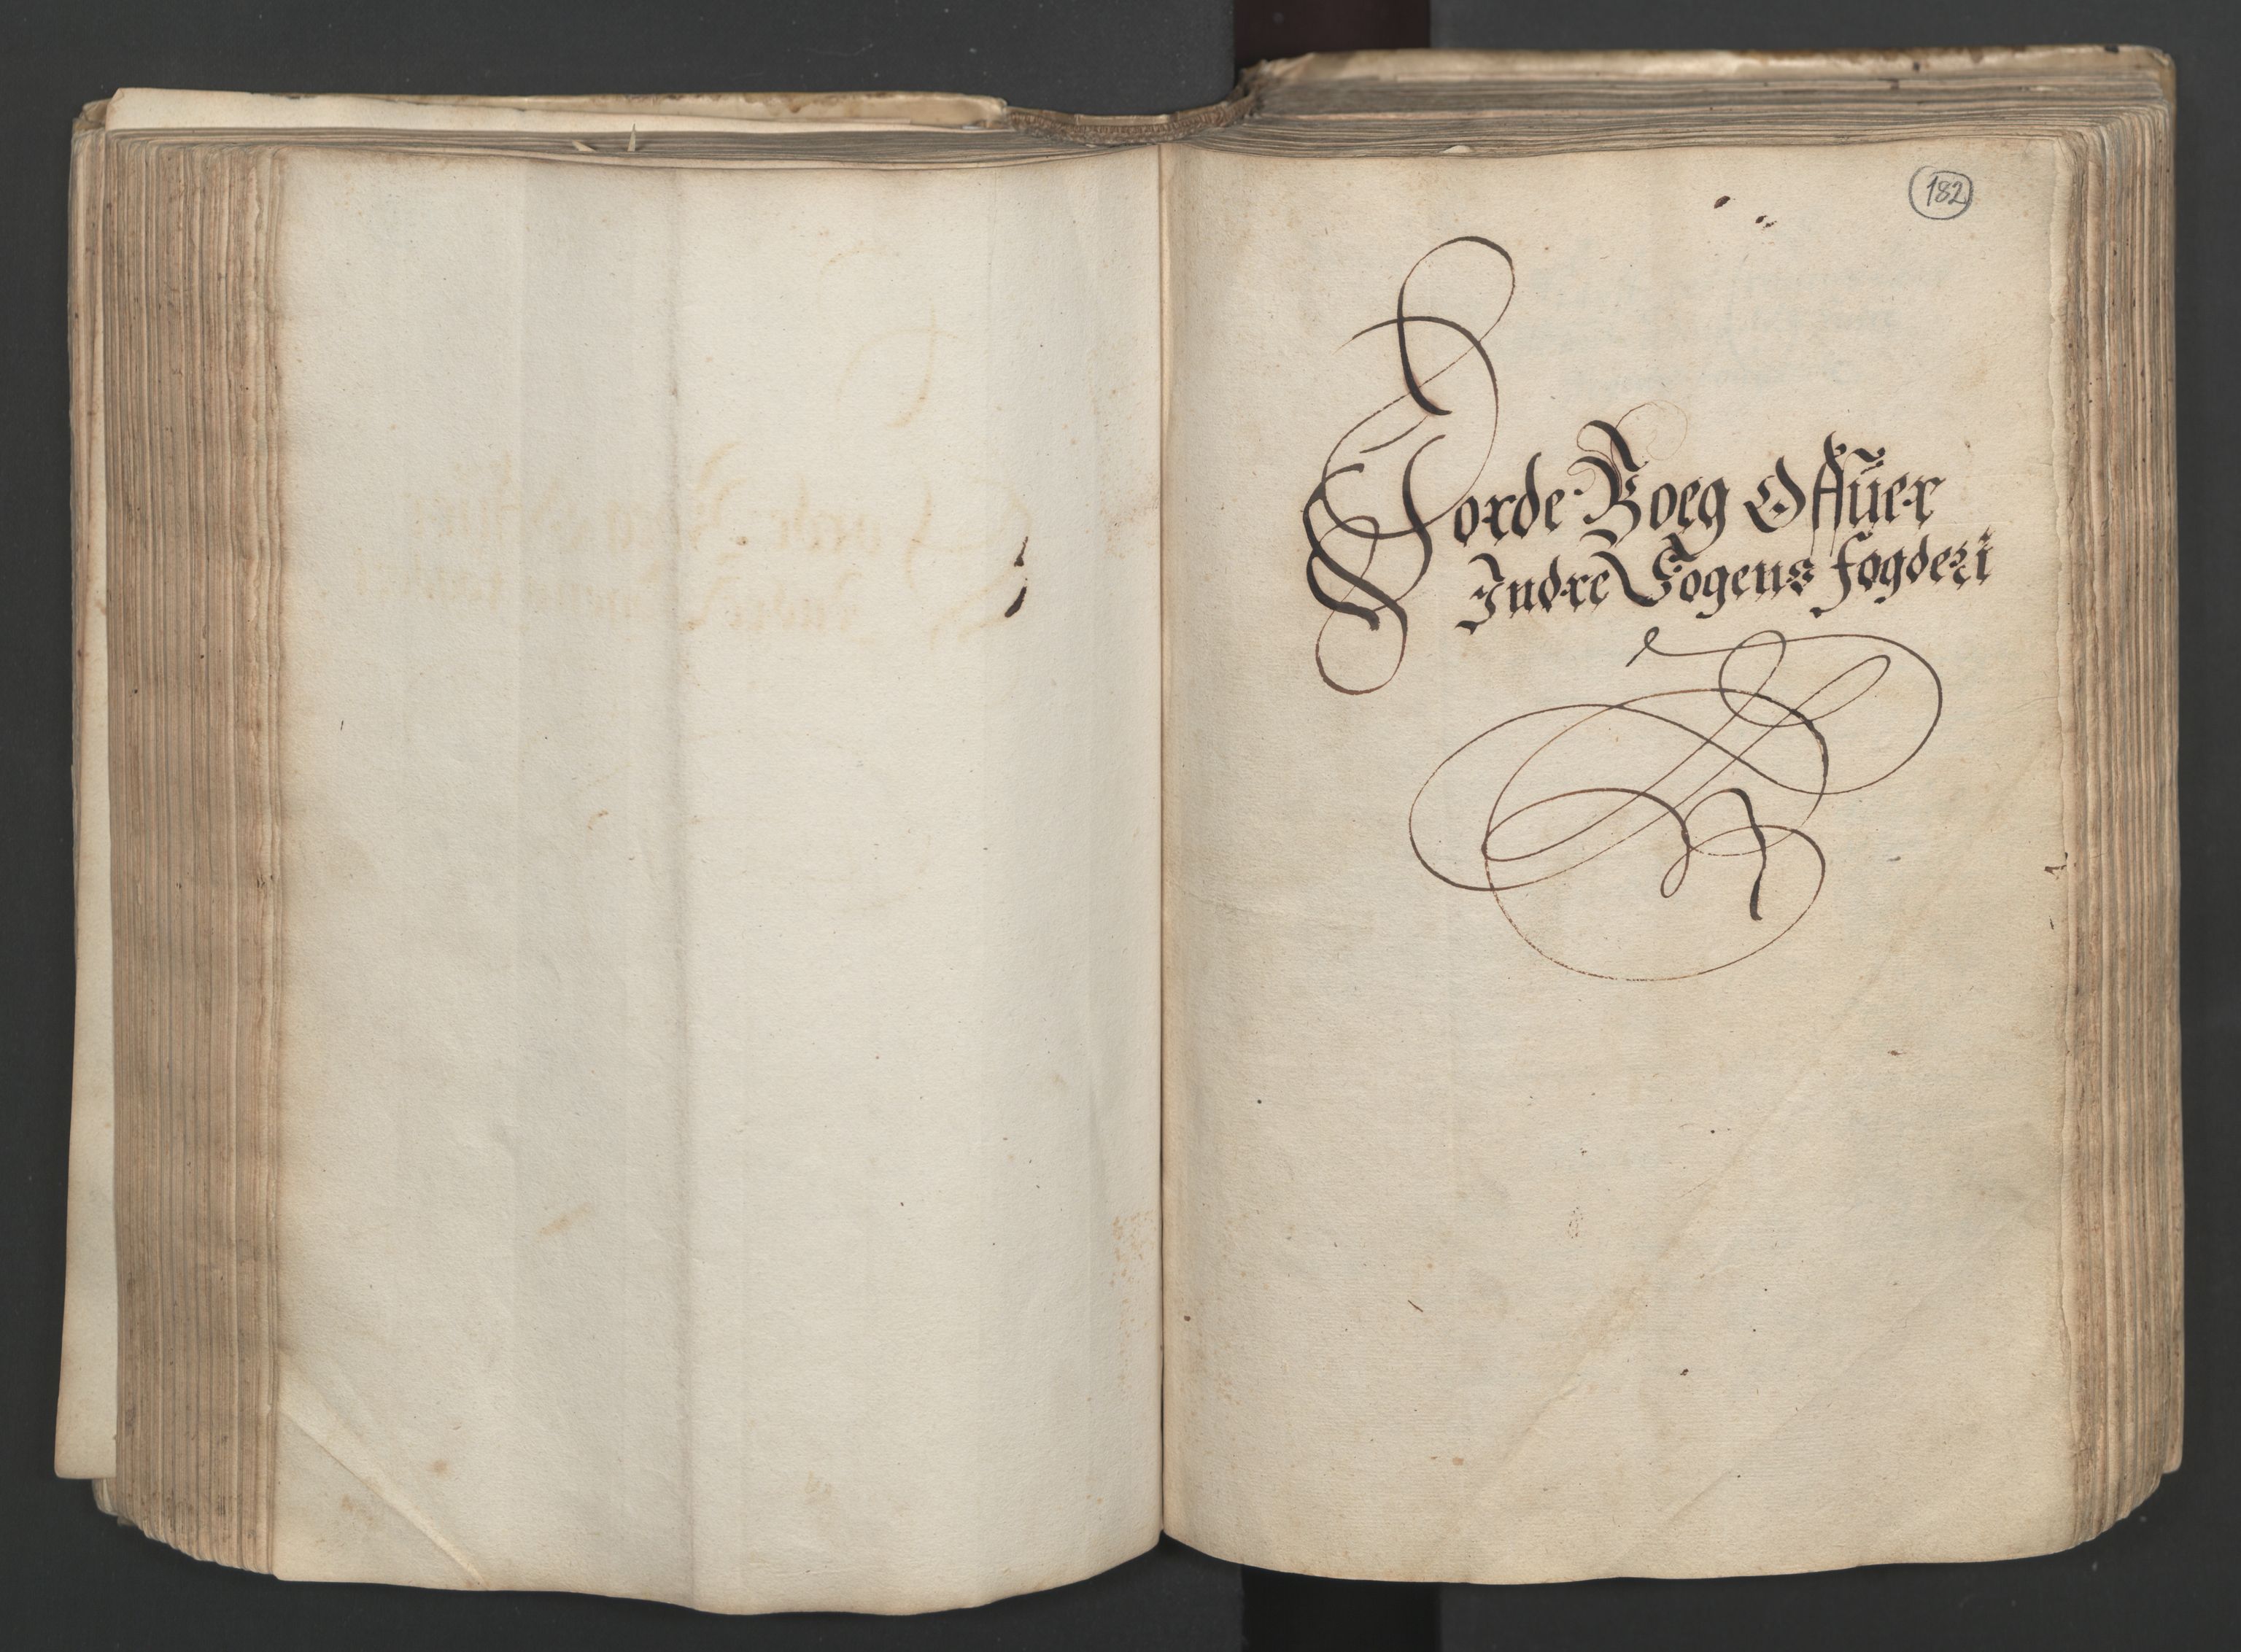 182
Jorde Boeg Offuer
Indre Sogens fogderi